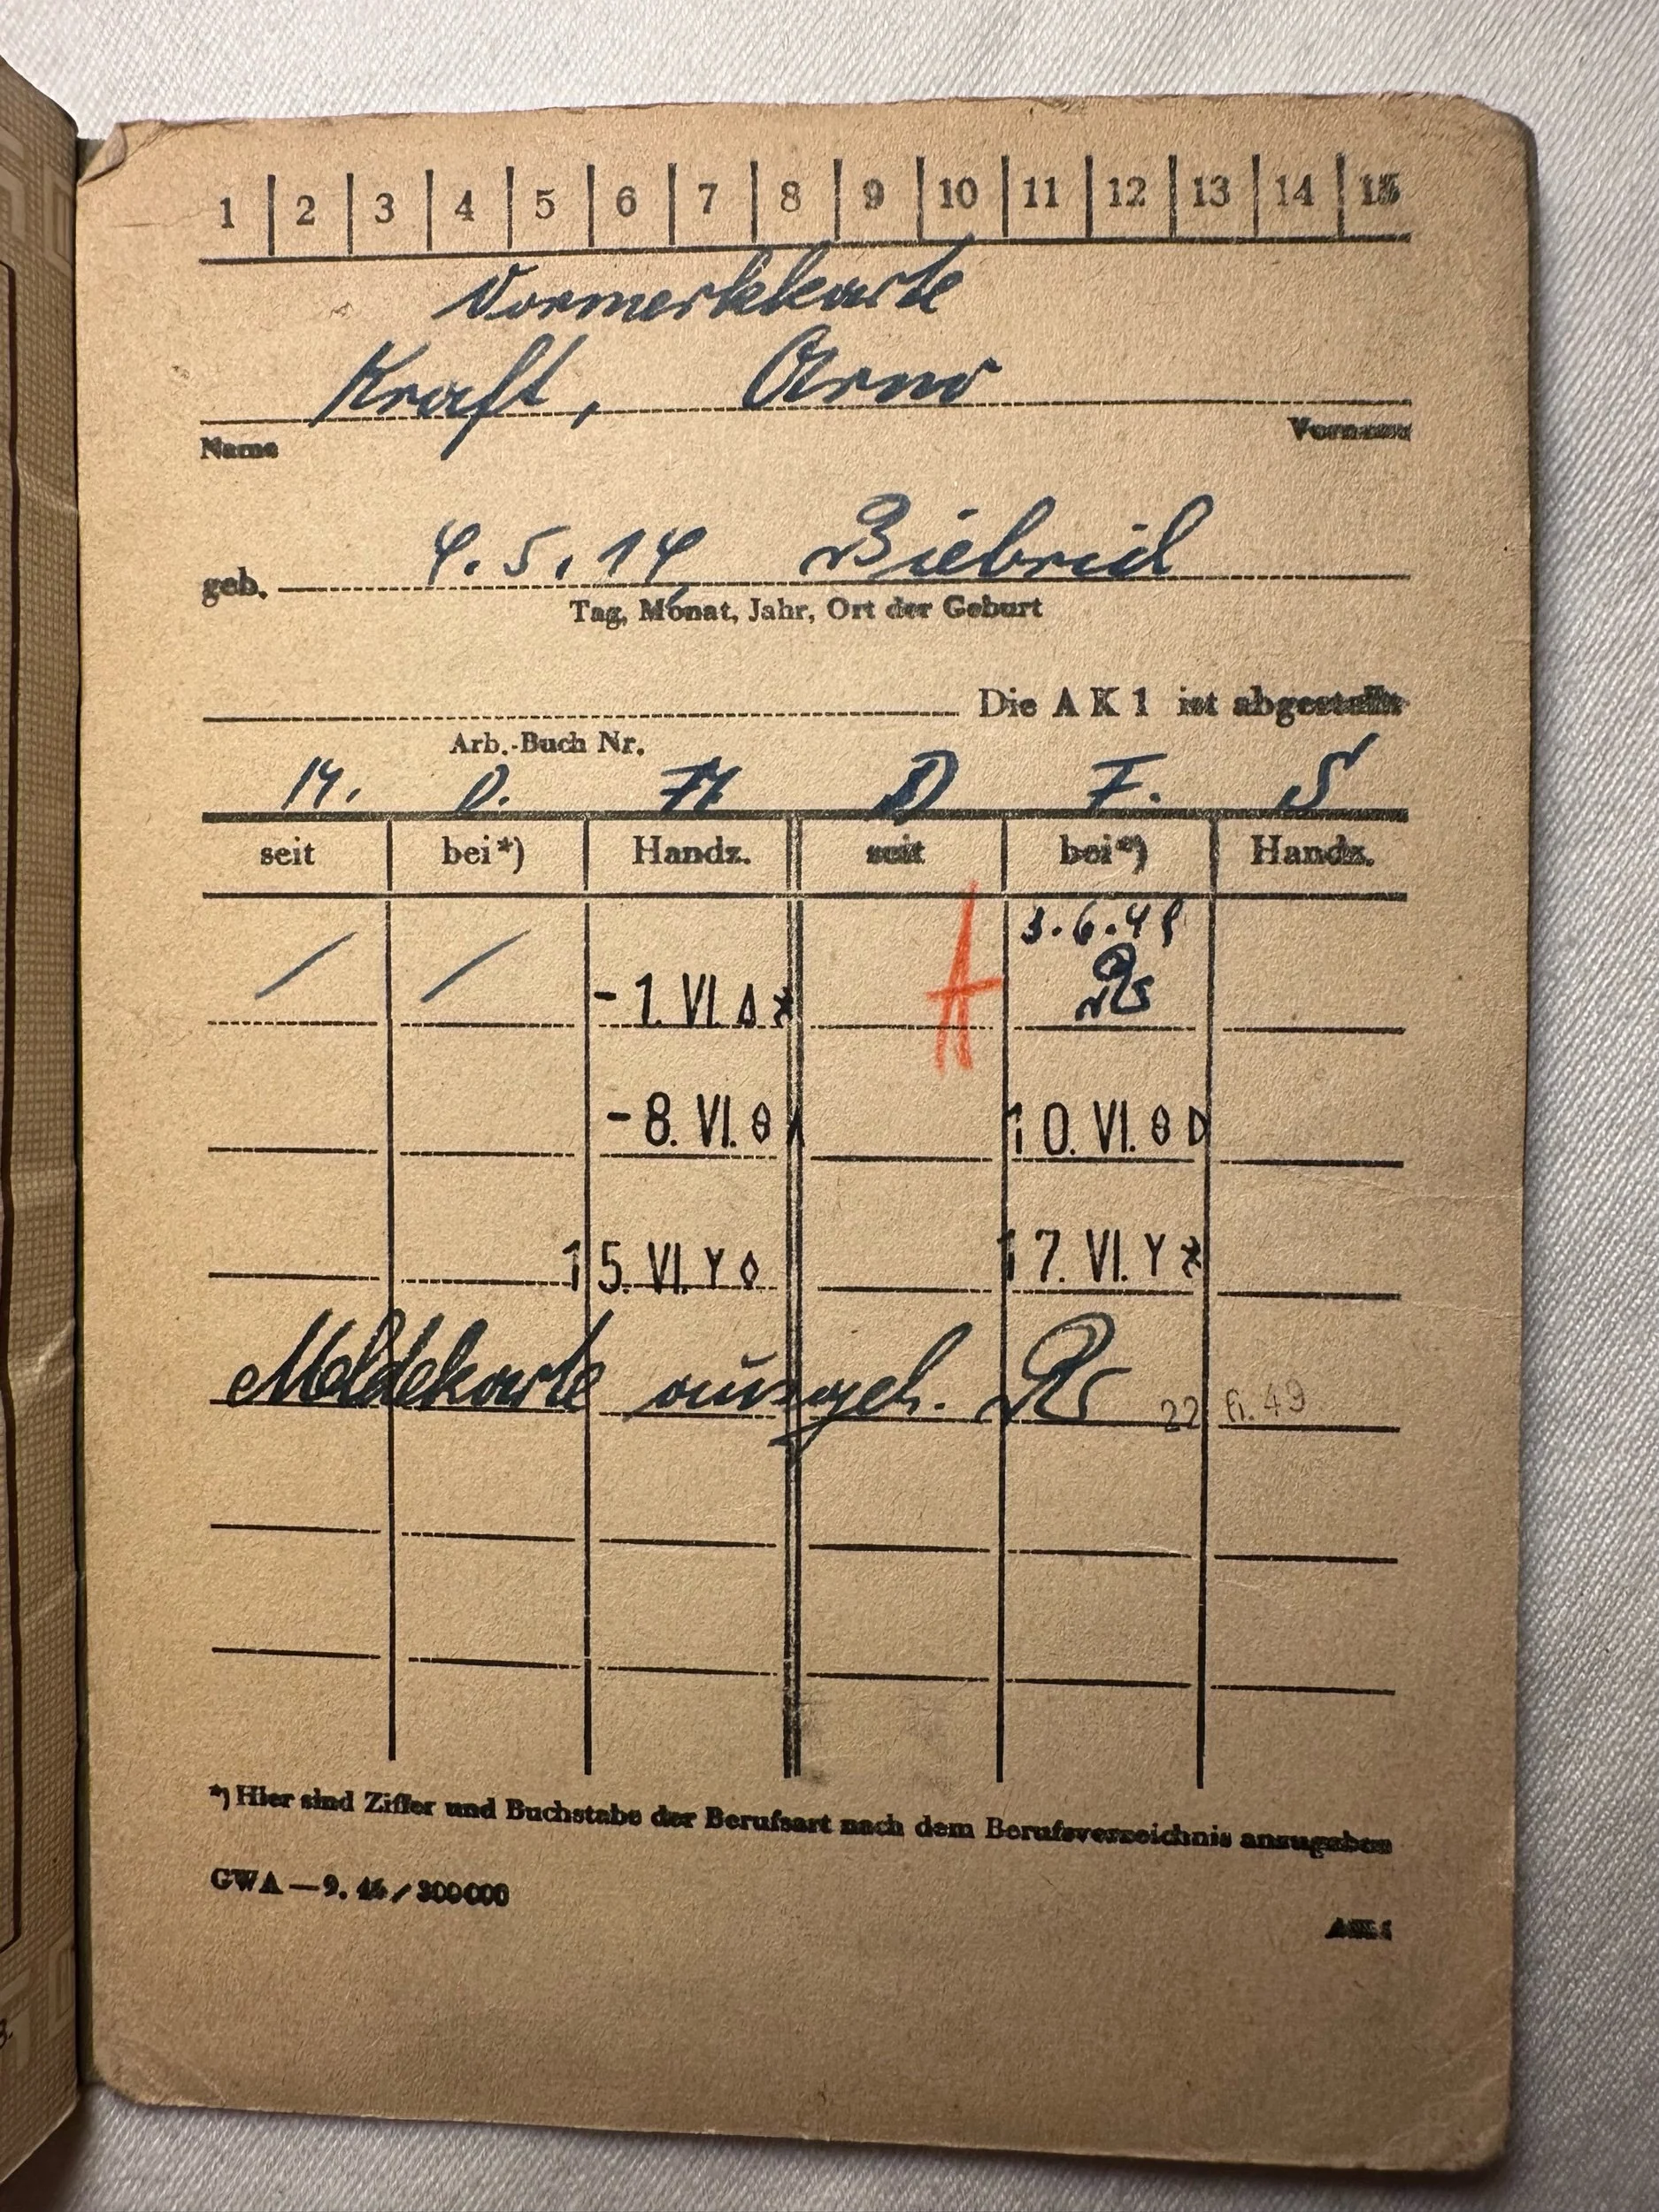 1 2 3 4 5 6 7 8 9 10 11 12 13 14 15
Vormerkkarte
Kraft, Arno
Name Vorname
4.5.14 Biebrich
geb.
Tag, Monat, Jahr, Ort der Geburt
Die AK1 ist abgestellt
Arb.-Buch Nr.
M. D. M D F. S
seit bei*) Handz. seit bei*) Handz.
3.6.49
- 1. VI.
- 8. VI. 10. VI.
15. VI. Y 17. VI. Y
Meldekarte ausgeh. 22 6. 49
*) Hier sind Ziffer und Buchstabe der Berufsart nach dem Berufsverzeichnis anzugeben
GWA — 9. 46 / 300000